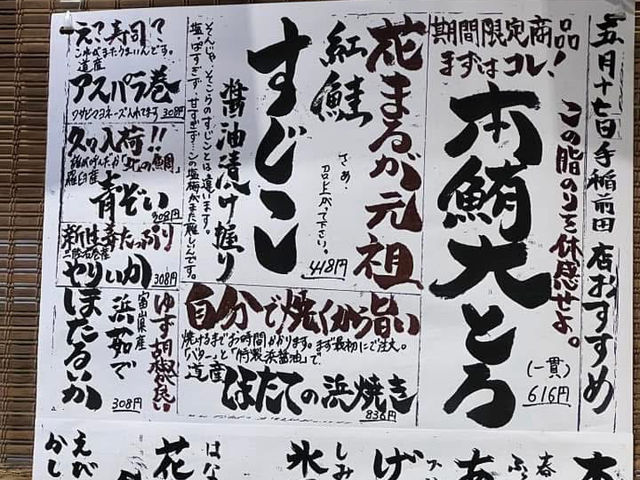 五月十七日手稲前田店おすすめ
期間限定商品
まずはコレ!
この脂のりを体感せよ。
本鮪大とろ
(一貫)
616円
花まるが元祖
紅鮭
さぁ、召し上がって下さい。
すじこ
醤油漬け握り
418円
そんじゃそこらのすじことは違います。
塩っぱすぎず、甘すぎず、この塩梅がまた難しいんです。
え?寿司?
これがまたうまいんです。
道産
アスパラ巻
ワサビマヨネーズ入れてます
308円
久々入荷!!
羅臼産
青ぞい
308円
新仕立たっぷり
やりいか
308円
ゆず胡椒が良い
富山県産
浜茹で
ほたるいか
308円
自分で焼くから旨い
焼けるまでお時間かかります。まず最初にご注文。
「バター」と「特製浜醤油」で
道産
ほたての浜焼き
836円
本
春
ふ
あ
げ
しみ
氷
はな
花
えび
かし